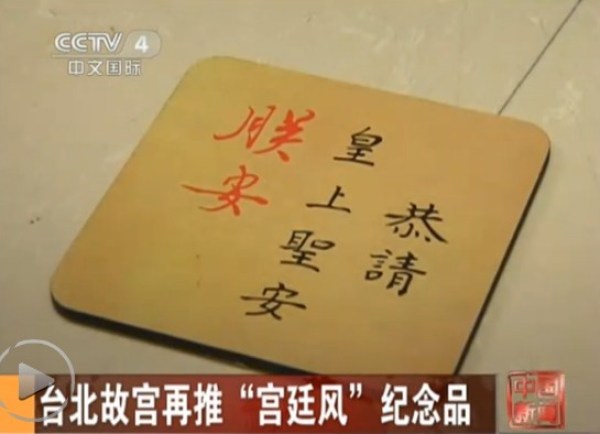 CCTV 4
中文国际
恭請
皇上聖安
朕安
台北故宫再推“宫廷风”纪念品
中国